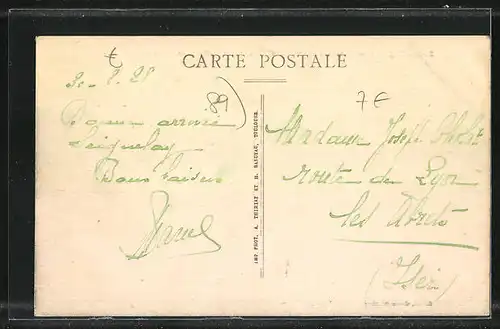 CARTE POSTALE
t
89
7€
30-8-28
Bonne arrivée
Seignelay
Bons baisers
Marcel
IMP PHOT. A. THIRIAT ET H. BASUYAU, TOULOUSE.
Madame Joseph
route de Lyon
Les Abrets
(Isère)